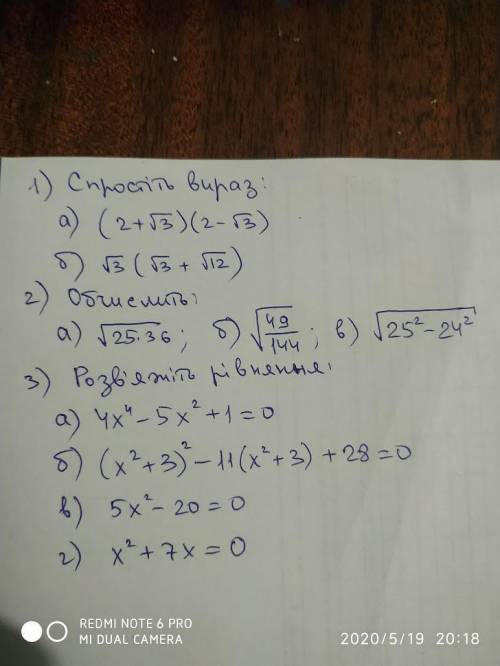 1) Спростіть вираз:
а) (2+√3)(2-√3)
б) √3 (√3 + √12)
2) Обчисліть:
а) √25·36; б) √49/144; в) √25²-24²
3) Розв'яжіть рівняння:
а) 4x⁴-5x²+1=0
б) (x²+3)²-11(x²+3)+28=0
в) 5x²-20=0
г) x²+7x=0
REDMI NOTE 6 PRO
MI DUAL CAMERA
2020/5/19 20:18